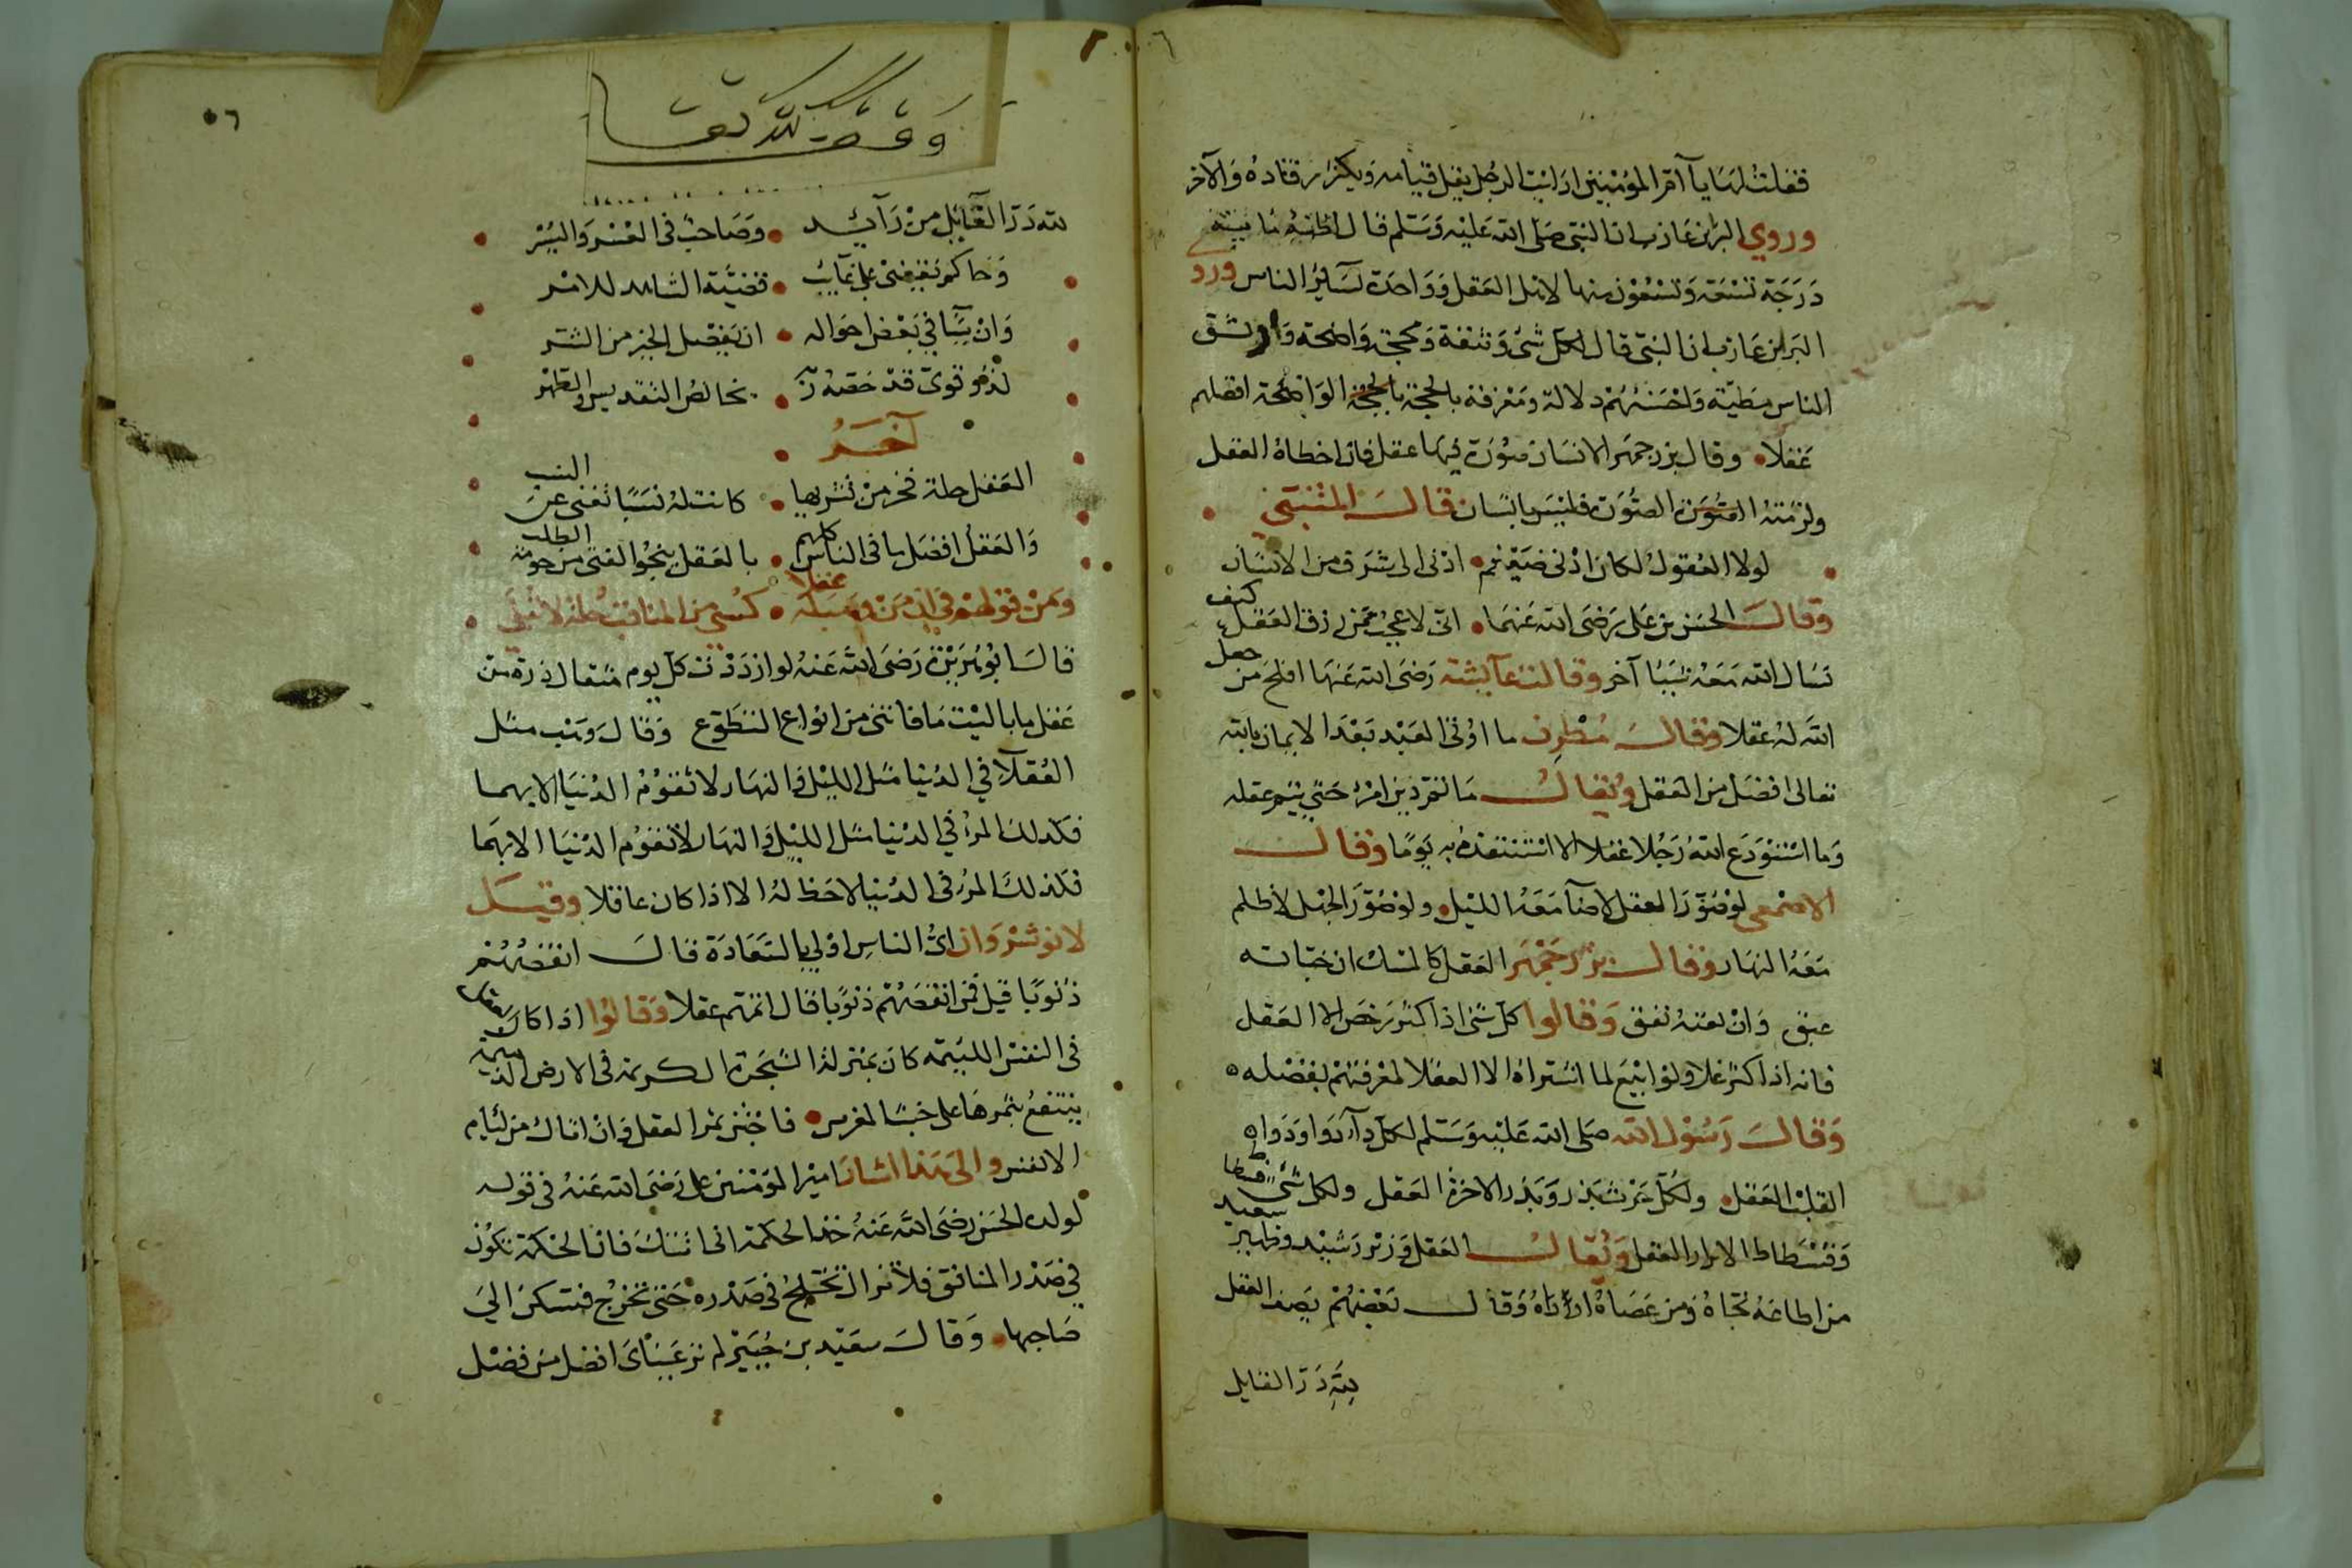 فقلت لها يا أم المؤمنين ارايت الرجل يقل قيامه ويكثر رقاده والآخر
وروي البرا بن عازب ان النبي صلى الله عليه وسلم قال
درجة تسعة وتسعون منها لاهل العقل وواحدة لسائر الناس ورو
البرا بن عازب ان النبي قال لكل شي وثقة ومحجة واضحة واوثق
الناس مطية واحسنهم دلالة ومعرفة بالحجة بالحجة الواضحة افضلهم
عقلا وقال بزرجمهر الانسان صورة فيها عقل فان اخطاه العقل
ولزمته الصورة فليس بانسان قال المتنبي
لولا العقول لكان ادنى ضيغم ادنى الى شرف من الانسان
وقال الحسن بن علي رضي الله عنهما اني لاعجب ممن رزق العقل كيف
يسال الله معه شيئا آخر وقالت عآيشة رضي الله عنها افلح من جعل
الله له عقلا وقال مطرف ما اوتي العبد بعد الايمان بالله
تعالى افضل من العقل ويقال ما تم دين امرئ حتى يتم عقله
وما استودع الله رجلا عقلا الا استنقذه به يوما وقال
الاصمعي لو صور العقل لاضآ معه الليل ولو صور الجهل لاظلم
معه النهار وقال بزرجمهر العقل كالمسك ان خباته
عبق وان بعته نفق وقالوا كل شي اذا كثر رخص الا العقل
فانه اذا كثر غلا ولو ابيع لما اشتراه الا العقلا لمعرفتهم بفضله
وقال رسول الله صلى الله عليه وسلم لكل دآء دوا ودواء
القلب العقل ولكل حرث بذر وبذر الاخرة العقل ولكل شي فسطاط
وفسطاط الابرار العقل ويقال العقل وزير رشيد وظهير سعيد
من اطاعه نجاه ومن عصاه ارداه وقال بعضهم يصف العقل
لله در القايل
٥٦
وقف لله تعالى
لله در العقل من رآيد وصاحب في العسر واليسر
وحاكم يقضي على غآيب قضية الشاهد للامر
وان شيا في بعض احواله ان يفصل الخير من الشر
لذو قوى قد خصه ربه بخالص التقديس والطهر
آخر
العقل حلة فخر من تسربلها كانت له نسبا تغني عن النسب
والعقل افضل ما في الناس كلهم بالعقل ينجو الفتى من حومة الطلب
قال ابو هريرة رضي الله عنه لو ازددت كل يوم مثقال ذرة من
عقل ما باليت ما فاتني من انواع التطوع وقال وهب مثل
العقلآ في الدنيا مثل الليل والنهار لا تقوم الدنيا الا بهما
فكذلك المرء في الدنيا مثل الليل والنهار لا تقوم الدنيا الا بهما
فكذلك المرء في الدنيا لا حظ له الا اذا كان عاقلا وقيل
لانوشروان اي الناس اولى بالسعادة قال انقصهم
ذنوبا قيل فمن انقصهم ذنوبا قال اتمهم عقلا وقالوا اذا كان العقل
في النفس اللئيمة كان بمنزلة الشجرة الكريمة في الارض الذميمة
ينتفع بثمرها على خبث المغرس فاجتن ثمر العقل وان اتاك من لئام
الانفس والى هذا اشار امير المؤمنين علي رضي الله عنه في قوله
لولده الحسن رضي الله عنه خذ الحكمة انى اتتك فان الحكمة تكون
في صدر المنافق فلا تزال تختلج في صدره حتى تخرج فتسكن الى
صاحبها وقال سعيد بن جبير لم تر عيناى افضل من فضل